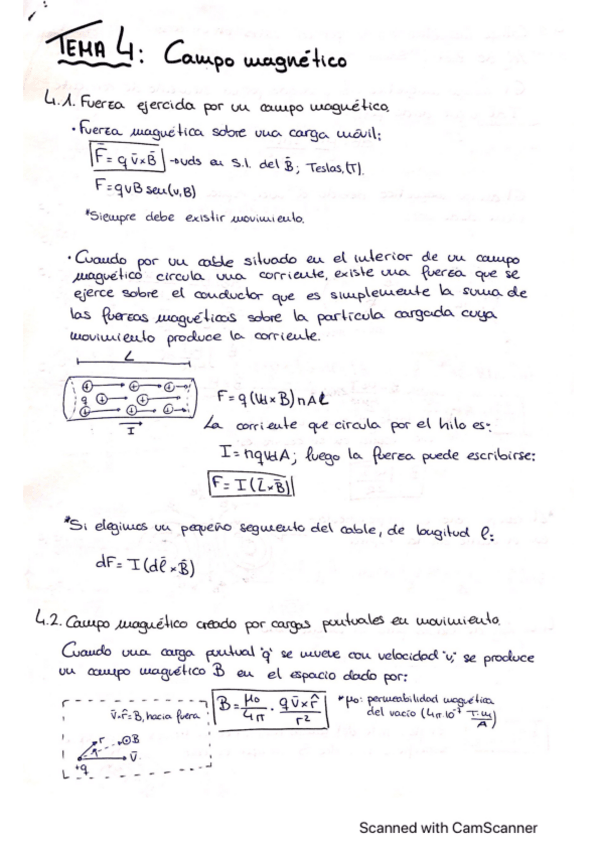 TEMA 4: Campo magnético
4.1. Fuerza ejercida por un campo magnético.
· Fuerza magnética sobre una carga móvil:
F̄ = q v̄ × B̄ → uds en S.I. del B̄; Teslas, (T).
F = qvB sen(v, B)
*Siempre debe existir movimiento.
· Cuando por un cable situado en el interior de un campo
magnético circula una corriente, existe una fuerza que se
ejerce sobre el conductor que es simplemente la suma de
las fuerzas magnéticas sobre la partícula cargada cuya
movimiento produce la corriente.
L
q
I
F = q (vd × B) n A L
La corriente que circula por el hilo es:
I = nqvdA; luego la fuerza puede escribirse:
F̄ = I (L̄ × B̄)
*Si elegimos un pequeño segmento del cable, de longitud l:
dF = I (dl̄ × B̄)
4.2. Campo magnético creado por cargas puntuales en movimiento.
Cuando una carga puntual 'q' se mueve con velocidad 'v', se produce
un campo magnético B en el espacio dado por:
v̄ × r̂ = B, hacia fuera
B = μ0/4π · q v̄ × r̂/r²
*μ0: permeabilidad magnética
del vacío (4π·10⁻⁷ T·m/A)
r
⊙B
r̂
v̄
+q
Scanned with CamScanner